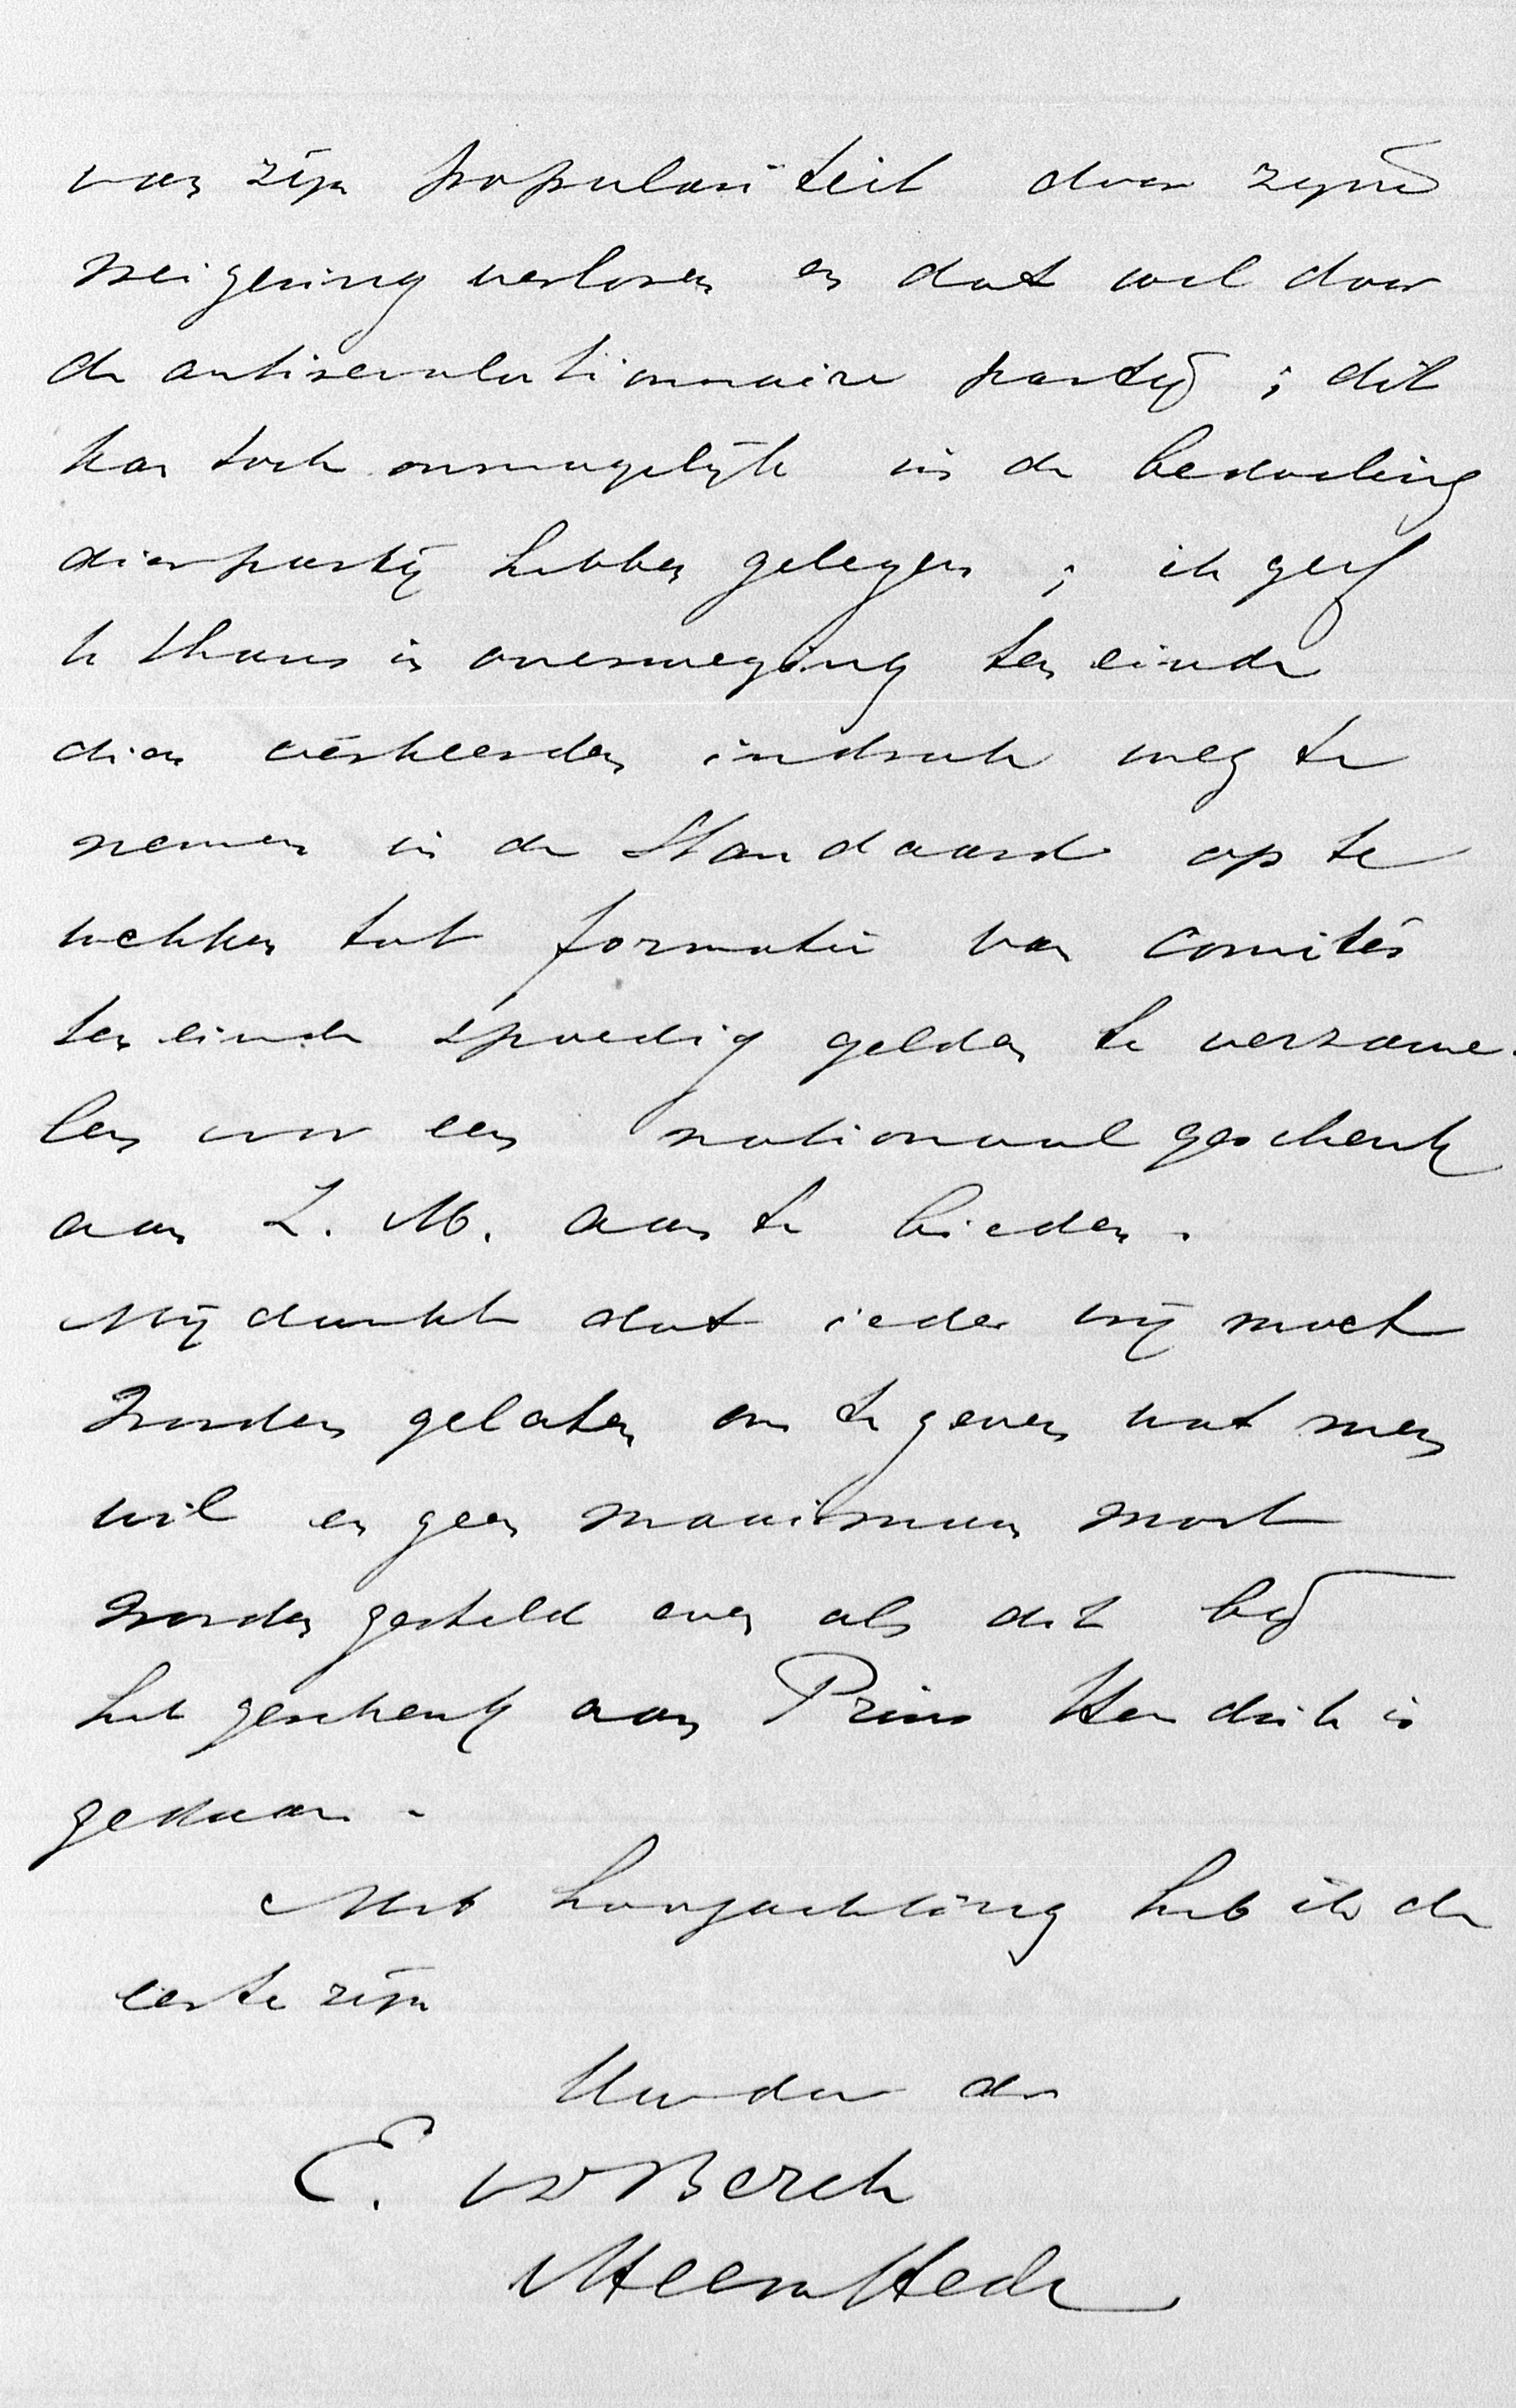 van zijn populariteit door zijne
weigering verloren en dat wel door
de antirevolutionnaire partij ; dit
kan toch onmogelijk in de bedoeling
dier partij hebben gelegen ; ik geef
U thans in overweging ten einde
dien verkeerden indruk weg te
nemen in de Standaard op te
wekken tot formatie van comités
ten einde spoedig gelden te verzame-
len voor een nationaal geschenk
aan Z. M. aan te bieden.
Mij dunkt dat ieder vrij moet
worden gelaten om te geven wat men
wil en geen maximum moet
worden gesteld even als dit bij
het geschenk aan Prins Hendrik is
gedaan.
Met hoogachting heb ik de
eer te zijn
Uw dw dr
E. vd Berch
v Heemstede